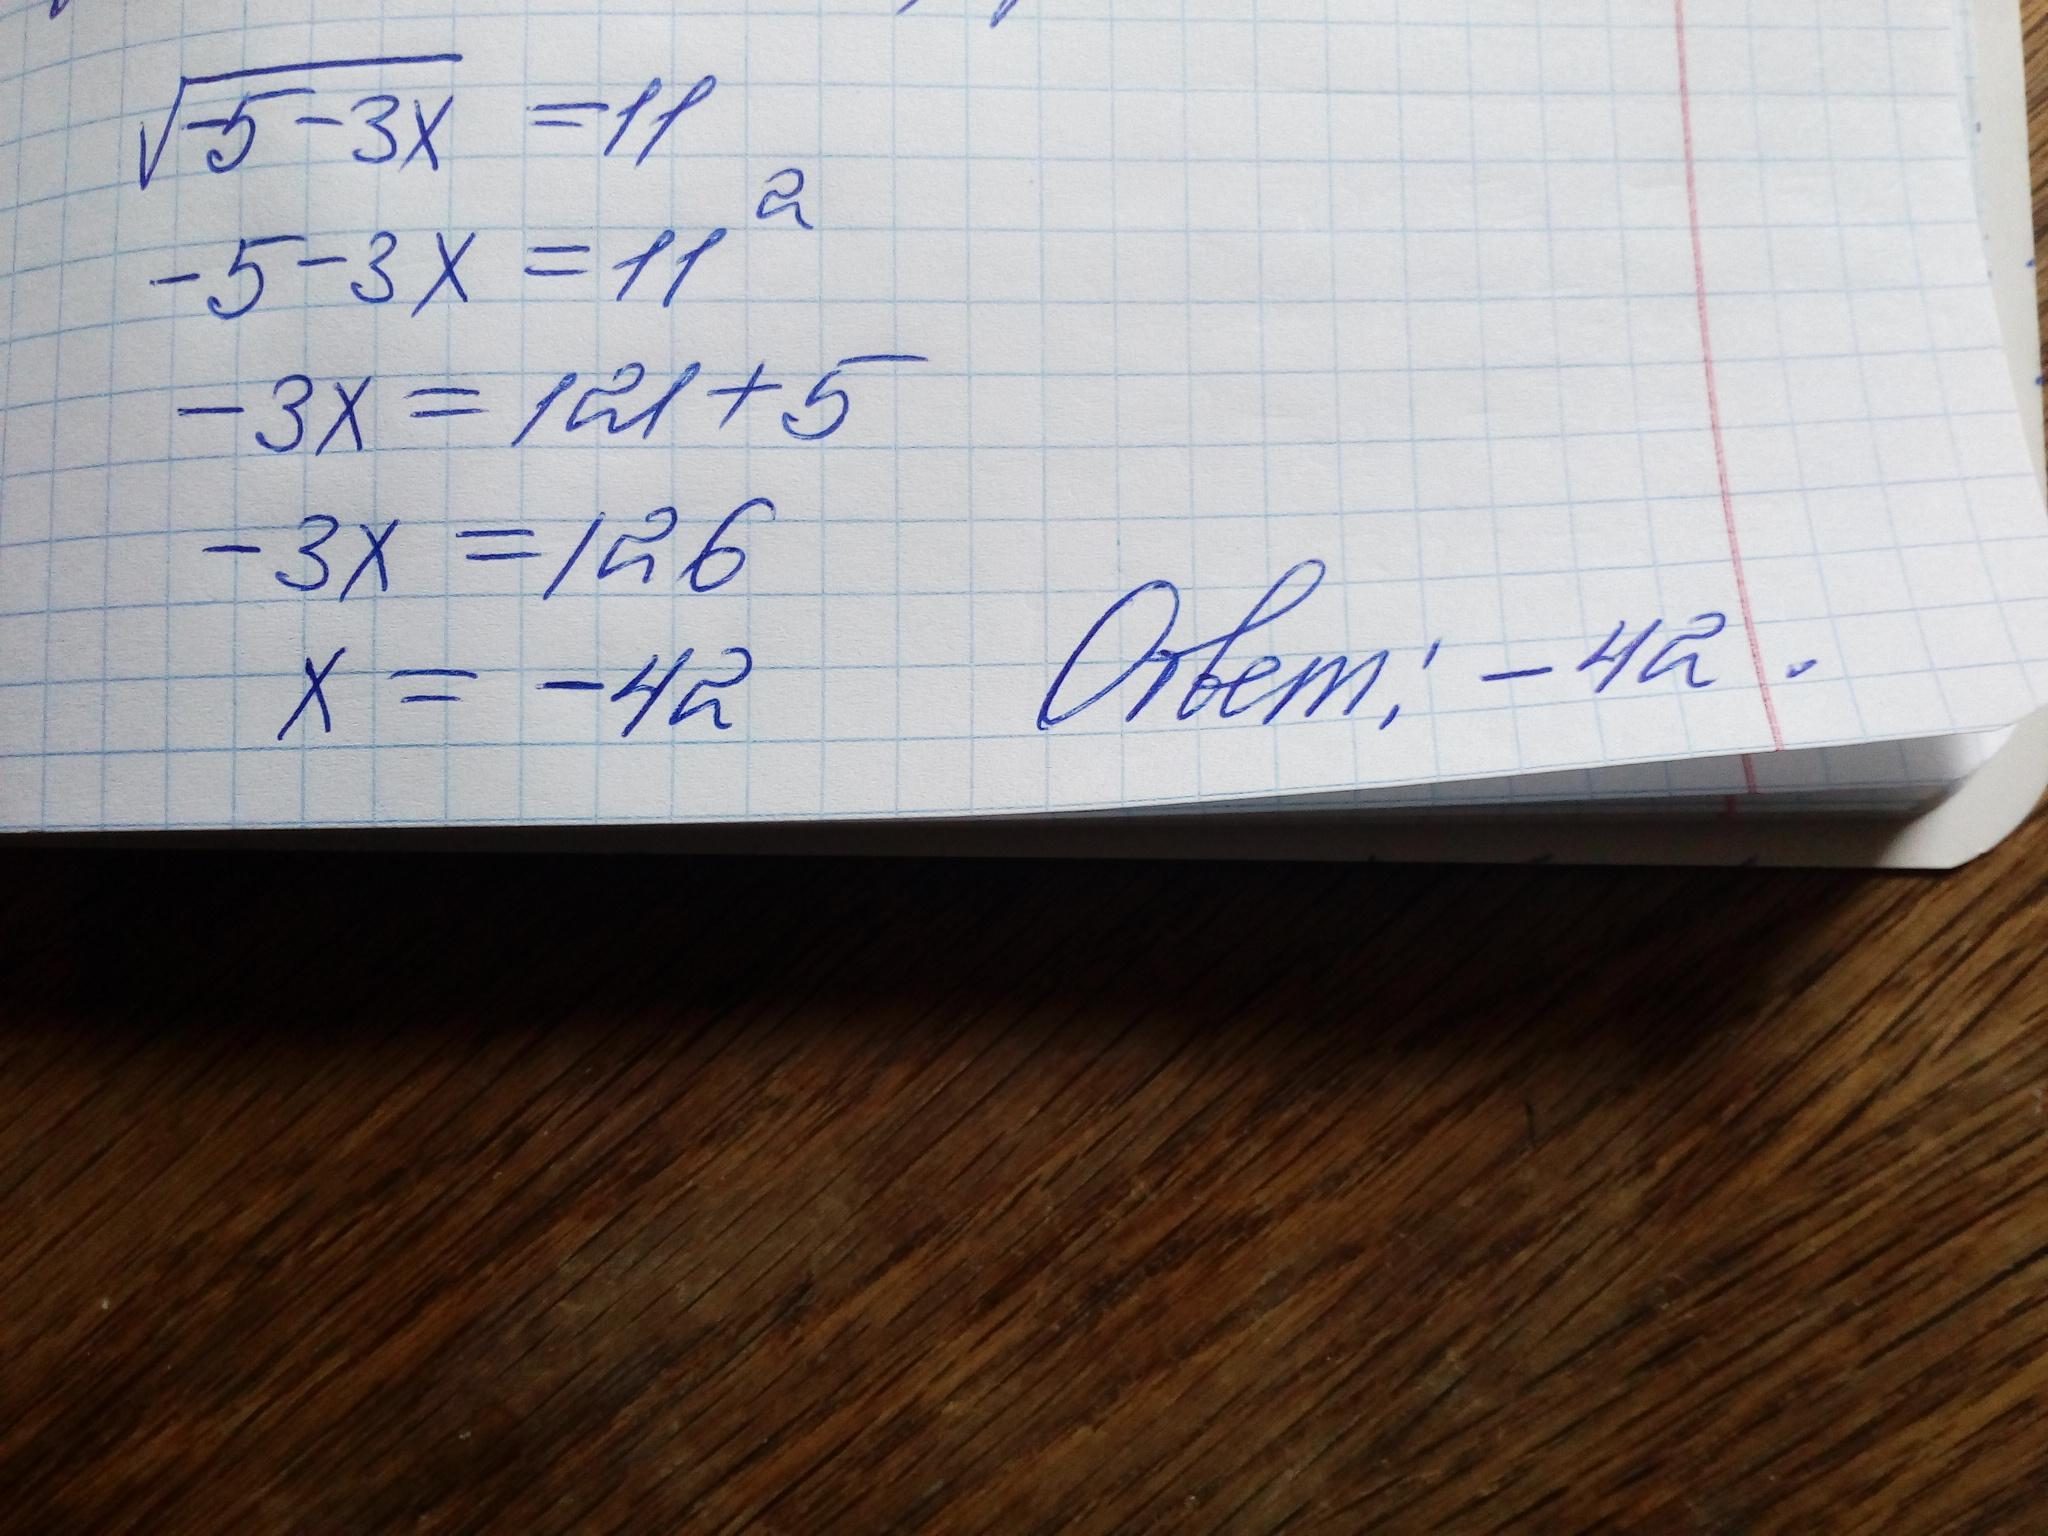 √-5-3x =11
-5-3x =11²
-3x = 121+5
-3x =126
x = -42
Ответ: -42.